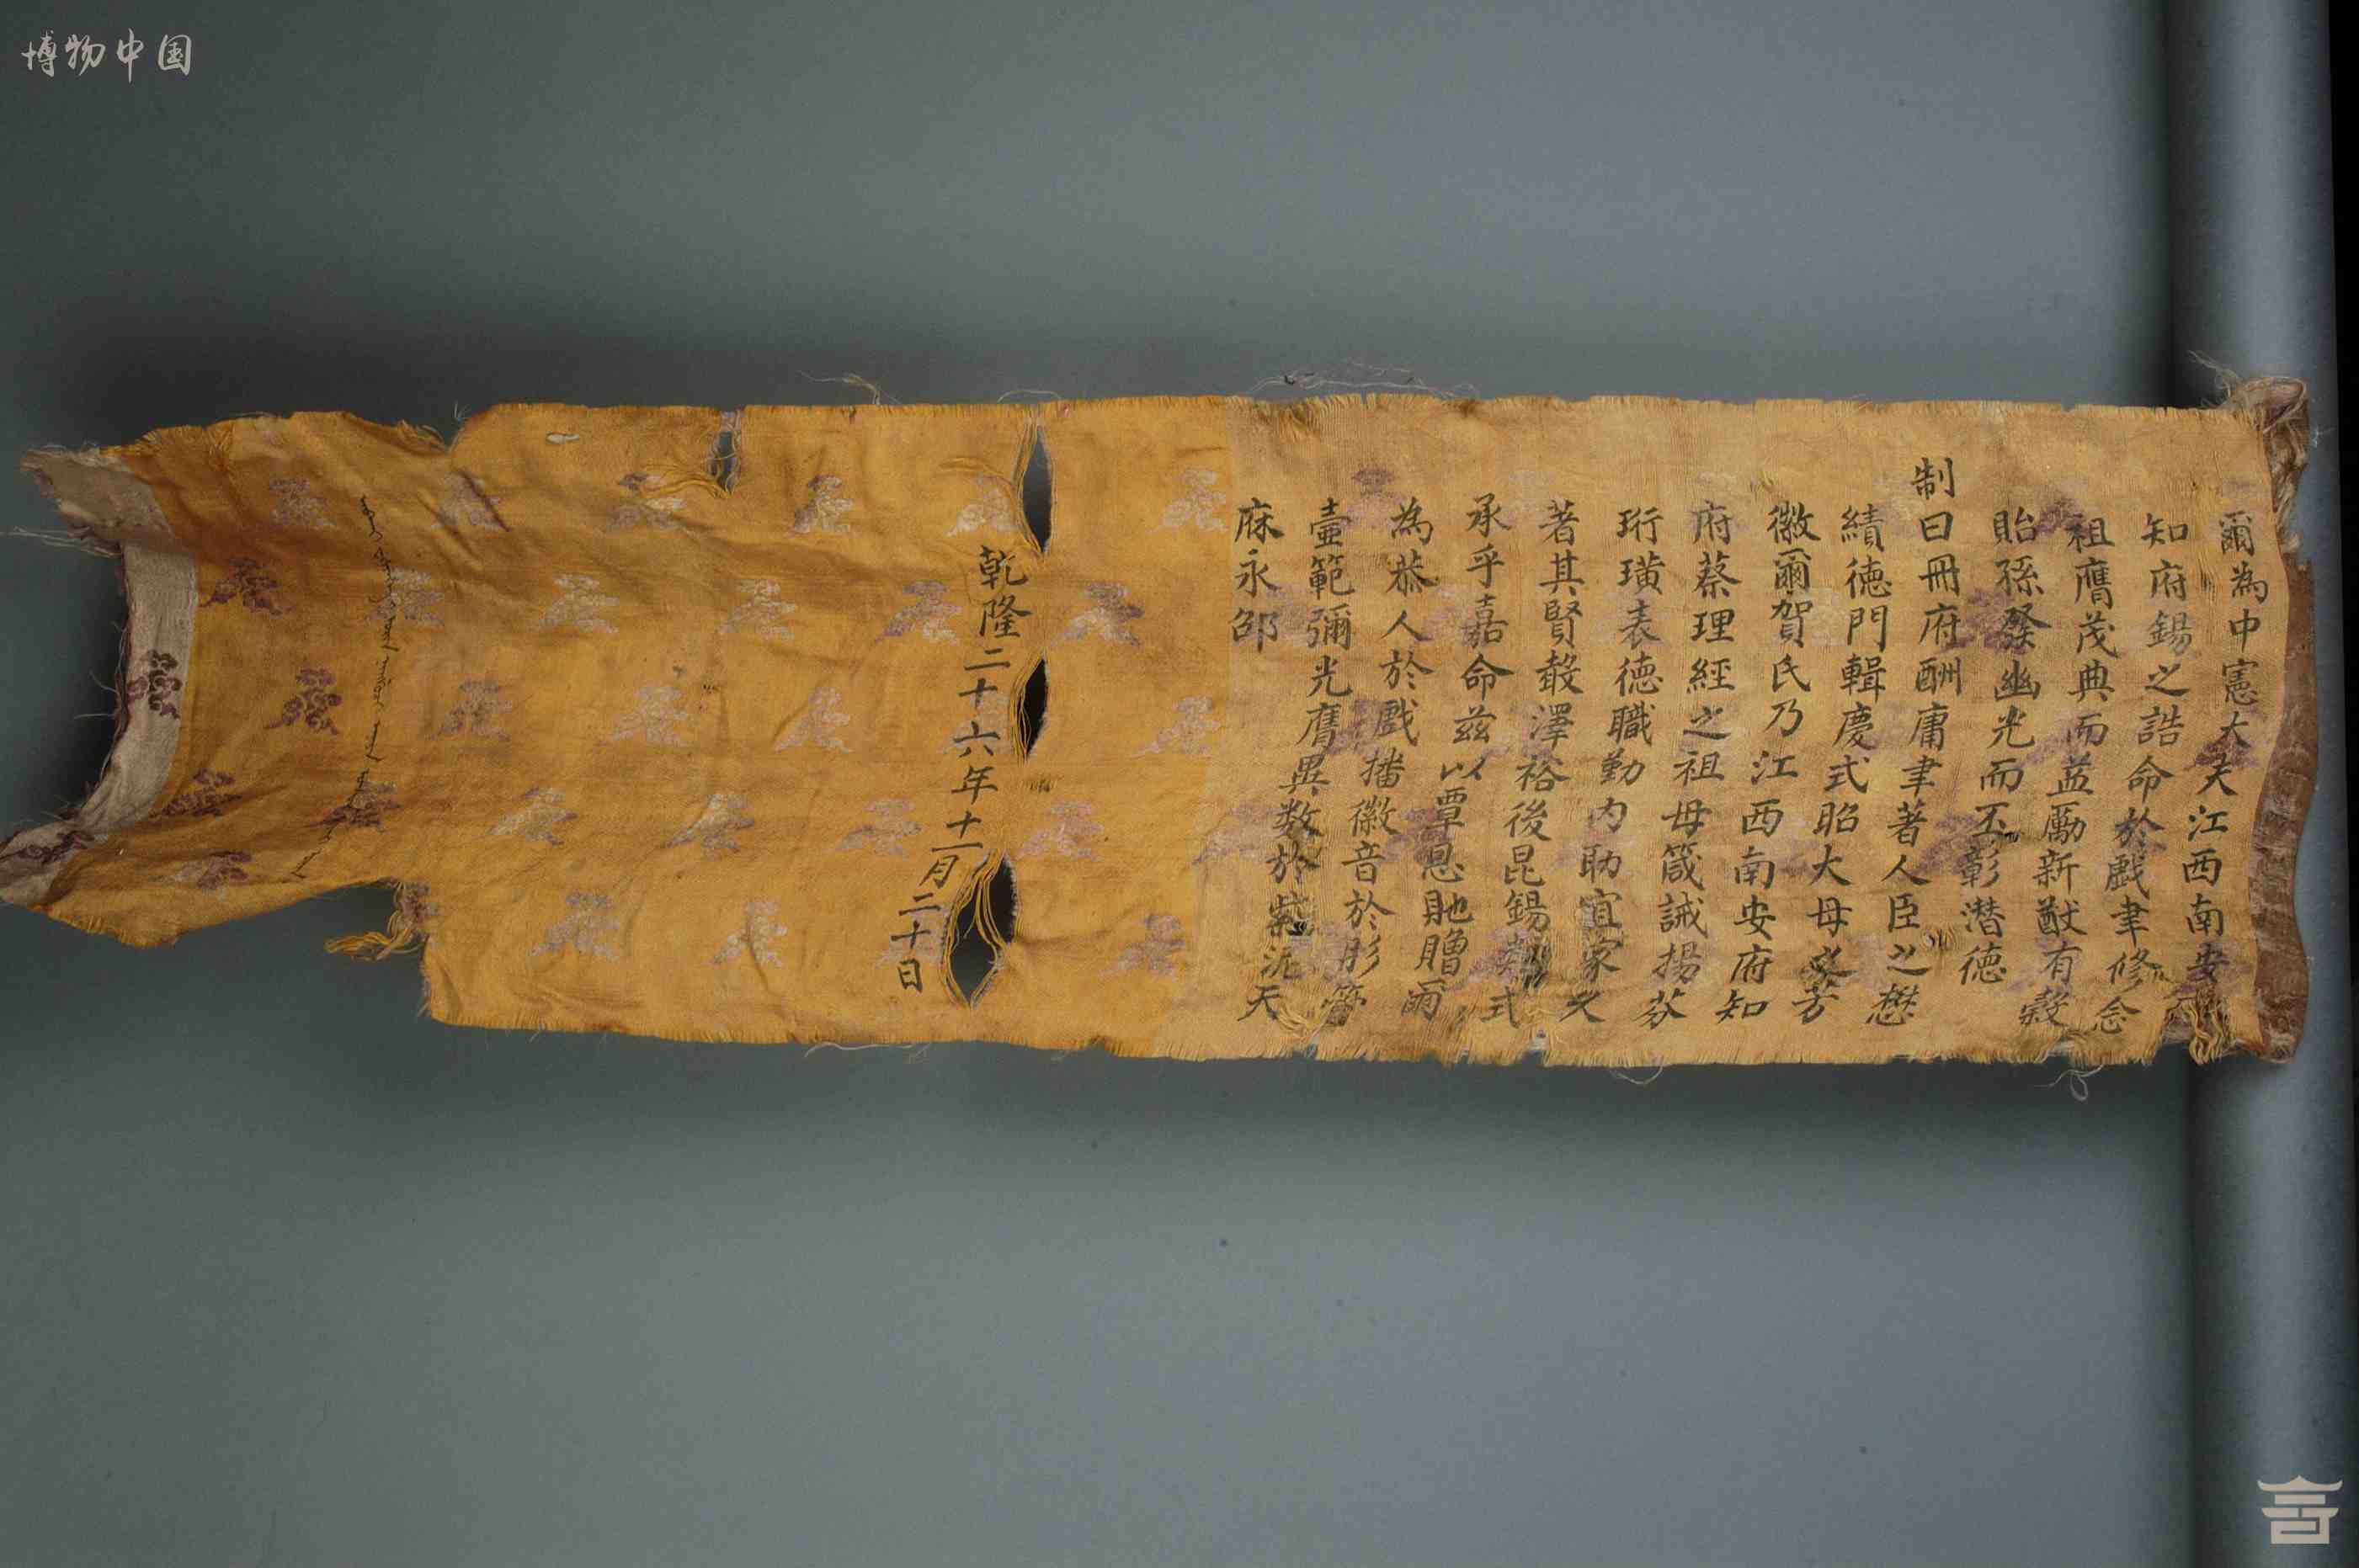 博物中国
爾為中憲大夫江西南安
知府錫之誥命於戲聿修念
祖膺茂典而益勵新猷有穀
貽孫發幽光而丕彰潛德
制曰冊府酬庸聿著人臣之懋
績德門輯慶式昭大母之芳
徽爾賀氏乃江西南安府知
府蔡理經之祖母箴誡揚芬
珩璜表德職勤內助宜家久
著其賢澤裕後昆錫類式
承乎嘉命茲以覃恩貤贈爾
為恭人於戲播徽音於彤管
壼範彌光膺異数於紫泥天
庥永邵
乾隆二十六年十一月二十日